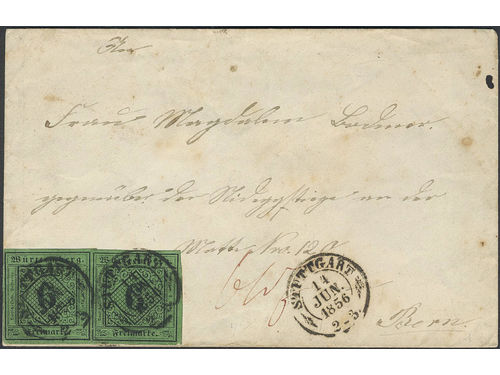 Frau Magdalena Bodmer.
gegenüber der Nideggstiege an der
Matte Nro. 12
Bern.
Württemberg.
6
Freimarke.
Württemberg.
6
Freimarke.
STUTTGART
14
JUN.
1856
2-3.